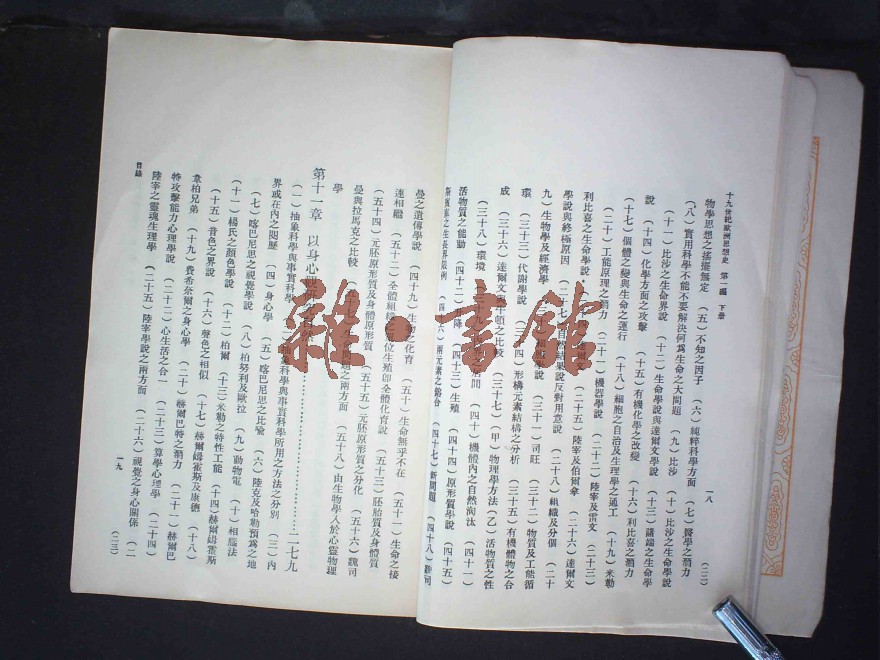 十九世紀歐洲思想史 第一編 下冊
一八
(二二)
物學思想之搖擺無定 (五)不知之因子 (六)純粹科學方面 (七)醫學之潛力
(八)實用科學不能不要解決何爲生命之大問題 (九)比沙 (十)比沙之生命學說
(十一)比沙之生命界說 (十二)生命學說與達爾文學說 (十三)諸端之生命學
說 (十四)化學方面之攻擊 (十五)有機化學之改變 (十六)利比喜之潛力
(十七)個體之變與生命之運行 (十八)細胞之自治及生理學之通工 (十九)米勒
(二十)工能原理之潛力 (二十一)機器學說 (二十二)陸宰及雷文 (二十三)
利比喜之生命學說 達爾文 (二十五)陸宰及伯爾拿 (二十六)達爾文
學說與終極原因 (二十七)結果說反對用意說 (二十八)組織及分個 (二十
九)生物學及經濟學 (三十一)司旺 (三十二)物質及工能循
環 (三十三)代謝學說 (三十四)形構元素結構之分析 (三十五)有機體物之合
成 (三十六)達爾文與牛頓之比較 (三十七)(甲)物理學方法(乙)活物質之性
(三十八)環境 (四十)機體內之自然淘汰 (四十一)
活物質之能動 (四十二) (四十三)生殖 (四十四)原形質學說 (四十五)
生長界限例 (四十六)兩元素之餄合 (四十七)新問題 (四十八)魏司
曼之遺傳學說 (四十九)生物之化育 (五十)生命無乎不在 (五十一)生命之接
連相繼 (五十二)全體組織 位生殖卽全體化育說 (五十三)胚胎質及身體質
(五十四)元胚原形質及身體原形質 (五十五)元胚原形質之分化 魏司
曼與拉馬克之比較 問題之兩方面 (五十八)由生物學入於心靈物理
學
第十一章 以身心 二七九
(一)抽象科學與事實科學 抽象科學與事實科學所用之方法之分別 (三)內
界或在內之閱歷 (四)身心學 (五)喀巴尼思之比喩 (六)陸克及哈勒預爲之地
(七)喀巴尼思之視覺學說 (八)柏努利及歐拉 (九)動物電 (十)相感法
(十一)楊氏之顏色學說 (十二)柏爾 (十三)米勒之特性工能 (十四)赫爾姆霍斯
(十五)音色之界說 (十六)聲色之相似 (十七)赫爾姆霍斯及康德 (十八)
韋柏兄弟 (十九)費希奈爾之身心學 (二十)赫爾巴特之潛力 (二十一)赫爾巴
特攻擊能力心理學說 (二十二)心生活之合一 (二十三)算學心理學 (二十四)
陸宰之靈魂生理學 (二十五)陸宰學說之兩方面 (二十六)視覺之身心關係 (二
目錄
一九
(二三)
雜·書館